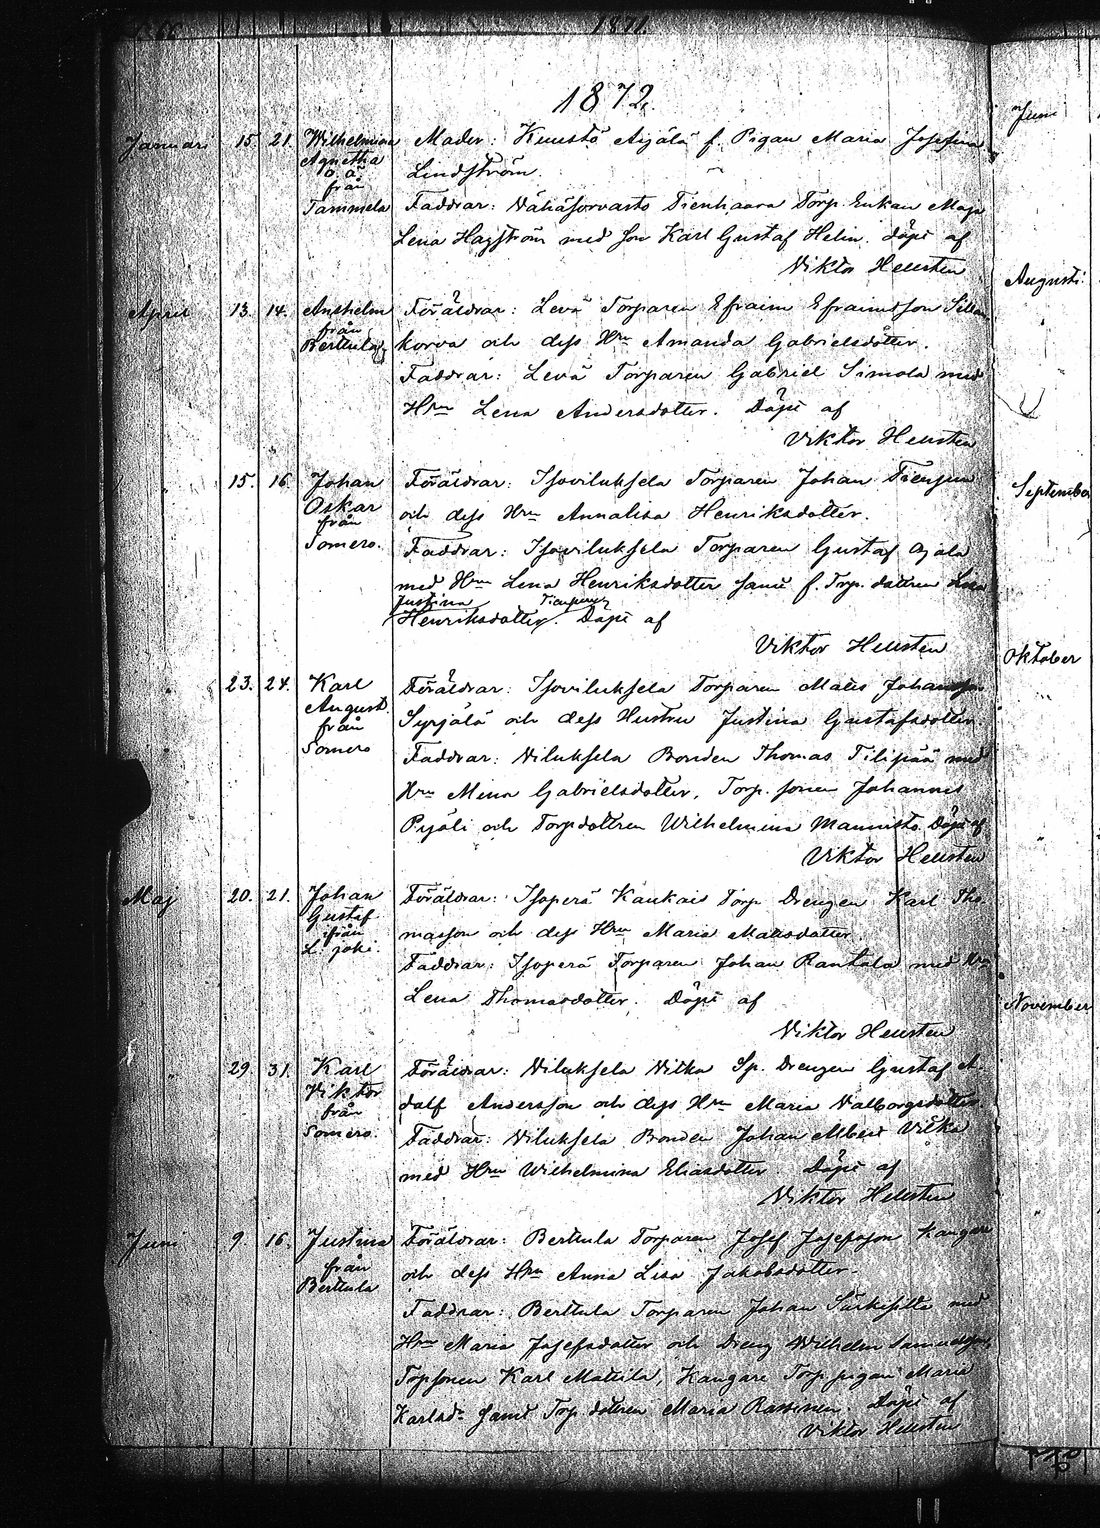 1871.
1872.
Januari 15. 21. Wilhelmina Agnetha o. ä. från Tammela
Moder: Kuusto Äijälä f. Pigan Maria Josefina
Lindström.
Faddrar: Vähäsorvasto Tienhaara Torp. Enkan Maja
Lena Hagström med son Karl Gustaf Helin. Döpt af
Viktor Hellsten
April 13. 14. Anshelm från Berttula
Föräldrar: Levä Torparen Efraim Efraimsson
korva och dess Hru Amanda Gabrielsdotter.
Faddrar: Levä Torparen Gabriel Simola med
Hru Lena Andersdotter. Döpt af
Viktor Hellsten
" 15. 16. Johan Oskar från Somero.
Föräldrar: Isoviluksela Torparen Johan
och dess Hru Annalisa Henriksdotter.
Faddrar: Isoviluksela Torparen Gustaf Ojala
med Hru Lena Henriksdotter samt f. Torp. dottren
Justina
Henriksdotter. Döpt af
Viktor Hellsten
" 23. 24. Karl August från Somero
Föräldrar: Isoviluksela Torparen Matts Johansson
Syrjälä och dess Hustru Justina Gustafsdotter.
Faddrar: Viluksela Bonden Thomas Filipää med
Hru Mina Gabrielsdotter, Torp. sonen Johannes
och Torpdottren Wilhelmina Mannisto Döpt af
Viktor Hellsten
Maj 20. 21. Johan Gustaf ifrån L. joki.
Föräldrar: Isoperä Kankais Torp Drengen Karl Tho-
masson och dess Hru Maria Mattsdotter
Faddrar: Isoperä Torparen Johan Rantala med Hru
Lena Thomasdotter. Döpt af
Viktor Hellsten
" 29. 31. Karl Viktor från Somero.
Föräldrar: Viluksela Vilka Sp. Drengen Gustaf A-
dolf Andersson och dess Hru Maria Valborgsdotter.
Faddrar: Viluksela Bonden Johan Albert Vilka
med Hru Wilhelmina Eliasdotter. Döpt af
Viktor Hellsten
Juni 9. 16. Justina från Berttula
Föräldrar: Berttula Torparen Josef Josefsson Kangare
och dess Hru Anna Lisa Jakobsdotter.
Faddrar: Berttula Torparen Johan Särkisilta med
Hru Maria Josefsdotter och Dreng Wilhelm
Torpsonen Karl Mattila, Kangare Torp pigan Maria
Karlsdr samt Torp dottren Maria Rassinen. Döpt af
Viktor Hellsten
Juni
Augusti
September
Oktober
November